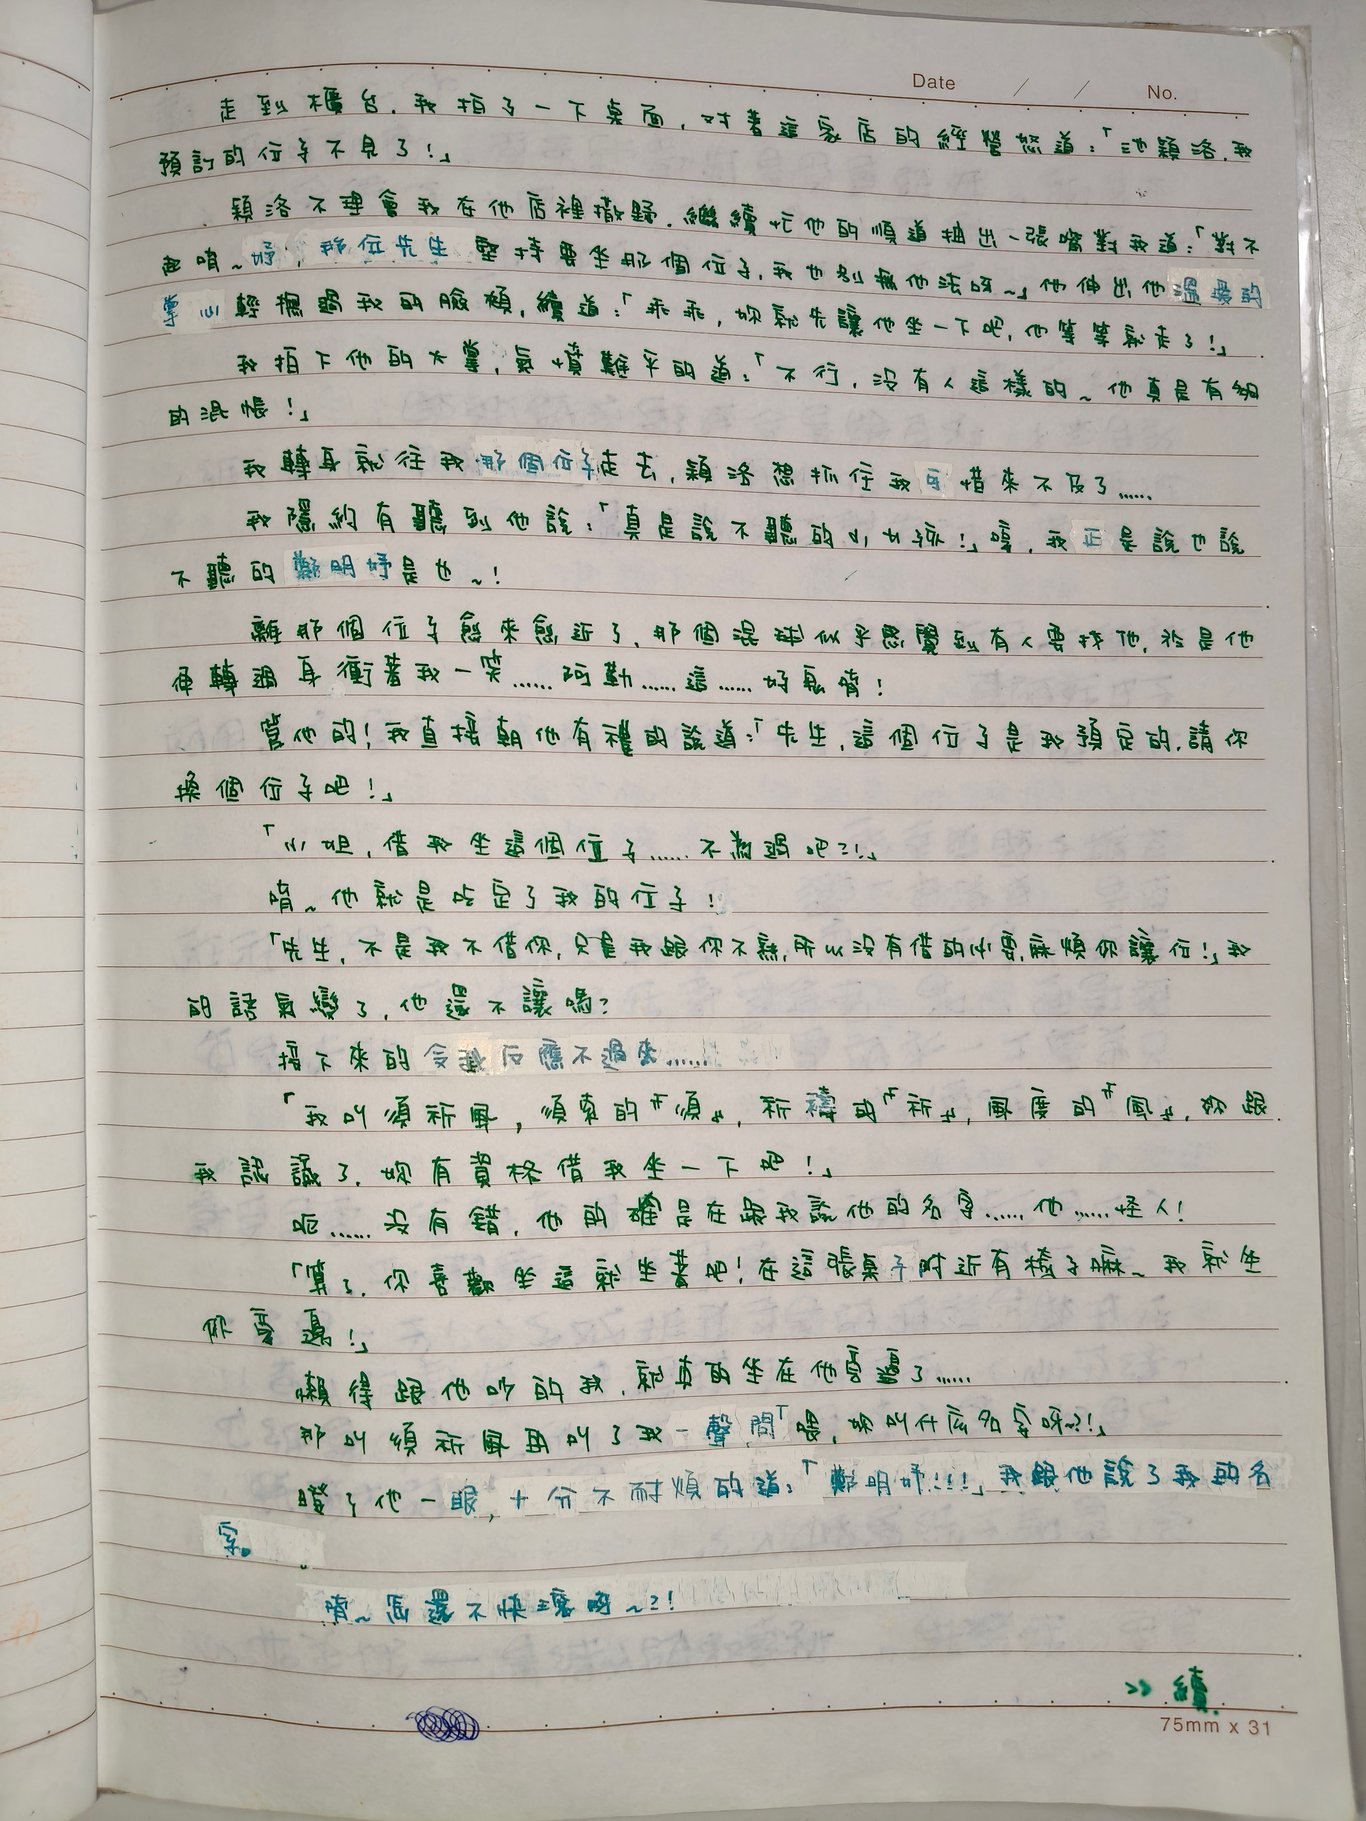 Date / / No.
走到櫃台，我拍了一下桌面，對著這家店的經營怒道：「池穎洛，我
預訂的位子不見了！」
穎洛不理會我在他店裡撒野，繼續忙他的順道抽出一張嘴對我道：「對不
起唷~妤，那位先生堅持要坐那個位子，我也別無他法呀~」他伸出他溫暖的
掌心輕撫過我的臉頰，續道：「乖乖，妳就先讓他坐一下吧，他等等就走了！」
我拍下他的大掌，氣憤難平的道：「不行，沒有人這樣的~他真是有夠
的混帳！」
我轉身就往我那個位子走去，穎洛想抓住我可惜來不及了……
我隱約有聽到他說：「真是說不聽的小女孩！」哼，我正是說也說
不聽的鄭明妤是也~！
離那個位子愈來愈近了，那個混球似乎感覺到有人要找他，於是他
便轉過身衝著我一笑……阿勒……這……好亂唷！
管他的！我直接朝他有禮的說道：「先生，這個位子是我預定的，請你
換個位子吧！」
「小姐，借我坐這個位子……不為過吧?!」
唷~他就是吃定了我的位子！
「先生，不是我不借你，只是我跟你不熟，所以沒有借的必要，麻煩你讓位！」我
的語氣變了，他還不讓嗎？
接下來的令我反應不過來……
「我叫須祈風，須索的『須』，祈禱的『祈』，風度的『風』，妳跟
我認識了，妳有資格借我坐一下吧！」
呃……沒有錯，他的確是在跟我說他的名字……他……怪人！
「算了，你喜歡坐這就坐著吧！在這張桌子附近有椅子嘛~我就坐
你旁邊！」
懶得跟他吵的我，就真的坐在他旁邊了……
那叫須祈風再叫了我一聲問「喂，妳叫什麼名字呀~?!」
瞪了他一眼，十分不耐煩的道：「鄭明妤!!!」我跟他說了我的名
字。
唷~居還不快讓唷~?!
>> 續
75mm x 31